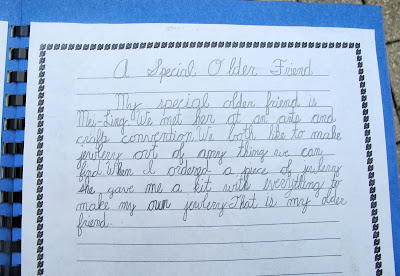 A Special Older Friend
My special older friend is
Mei-Ling. We met her at an arts and
crafts convention. We both like to make
jewlery out of any thing we can
find. When I ordered a piece of jewlery
she gave me a kit with everything to
make my own jewlery. That is my older
friend.